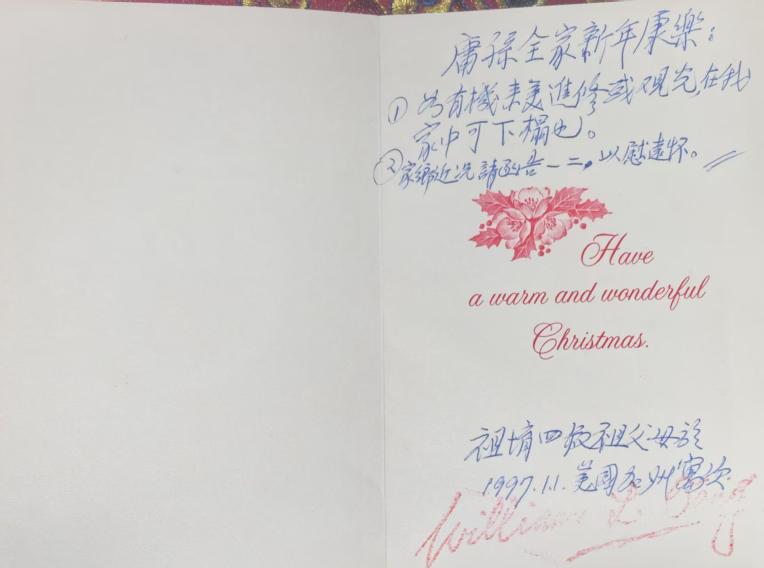 庸孫全家新年康樂：
① 如有機來美進修或观光,在我
家中可下榻也。
② 家鄉近况請函告一二，以慰遠怀。
Have
a warm and wonderful
Christmas.
祖堉四叔祖父母於
1997.1.1. 美國加州寓次
William L.